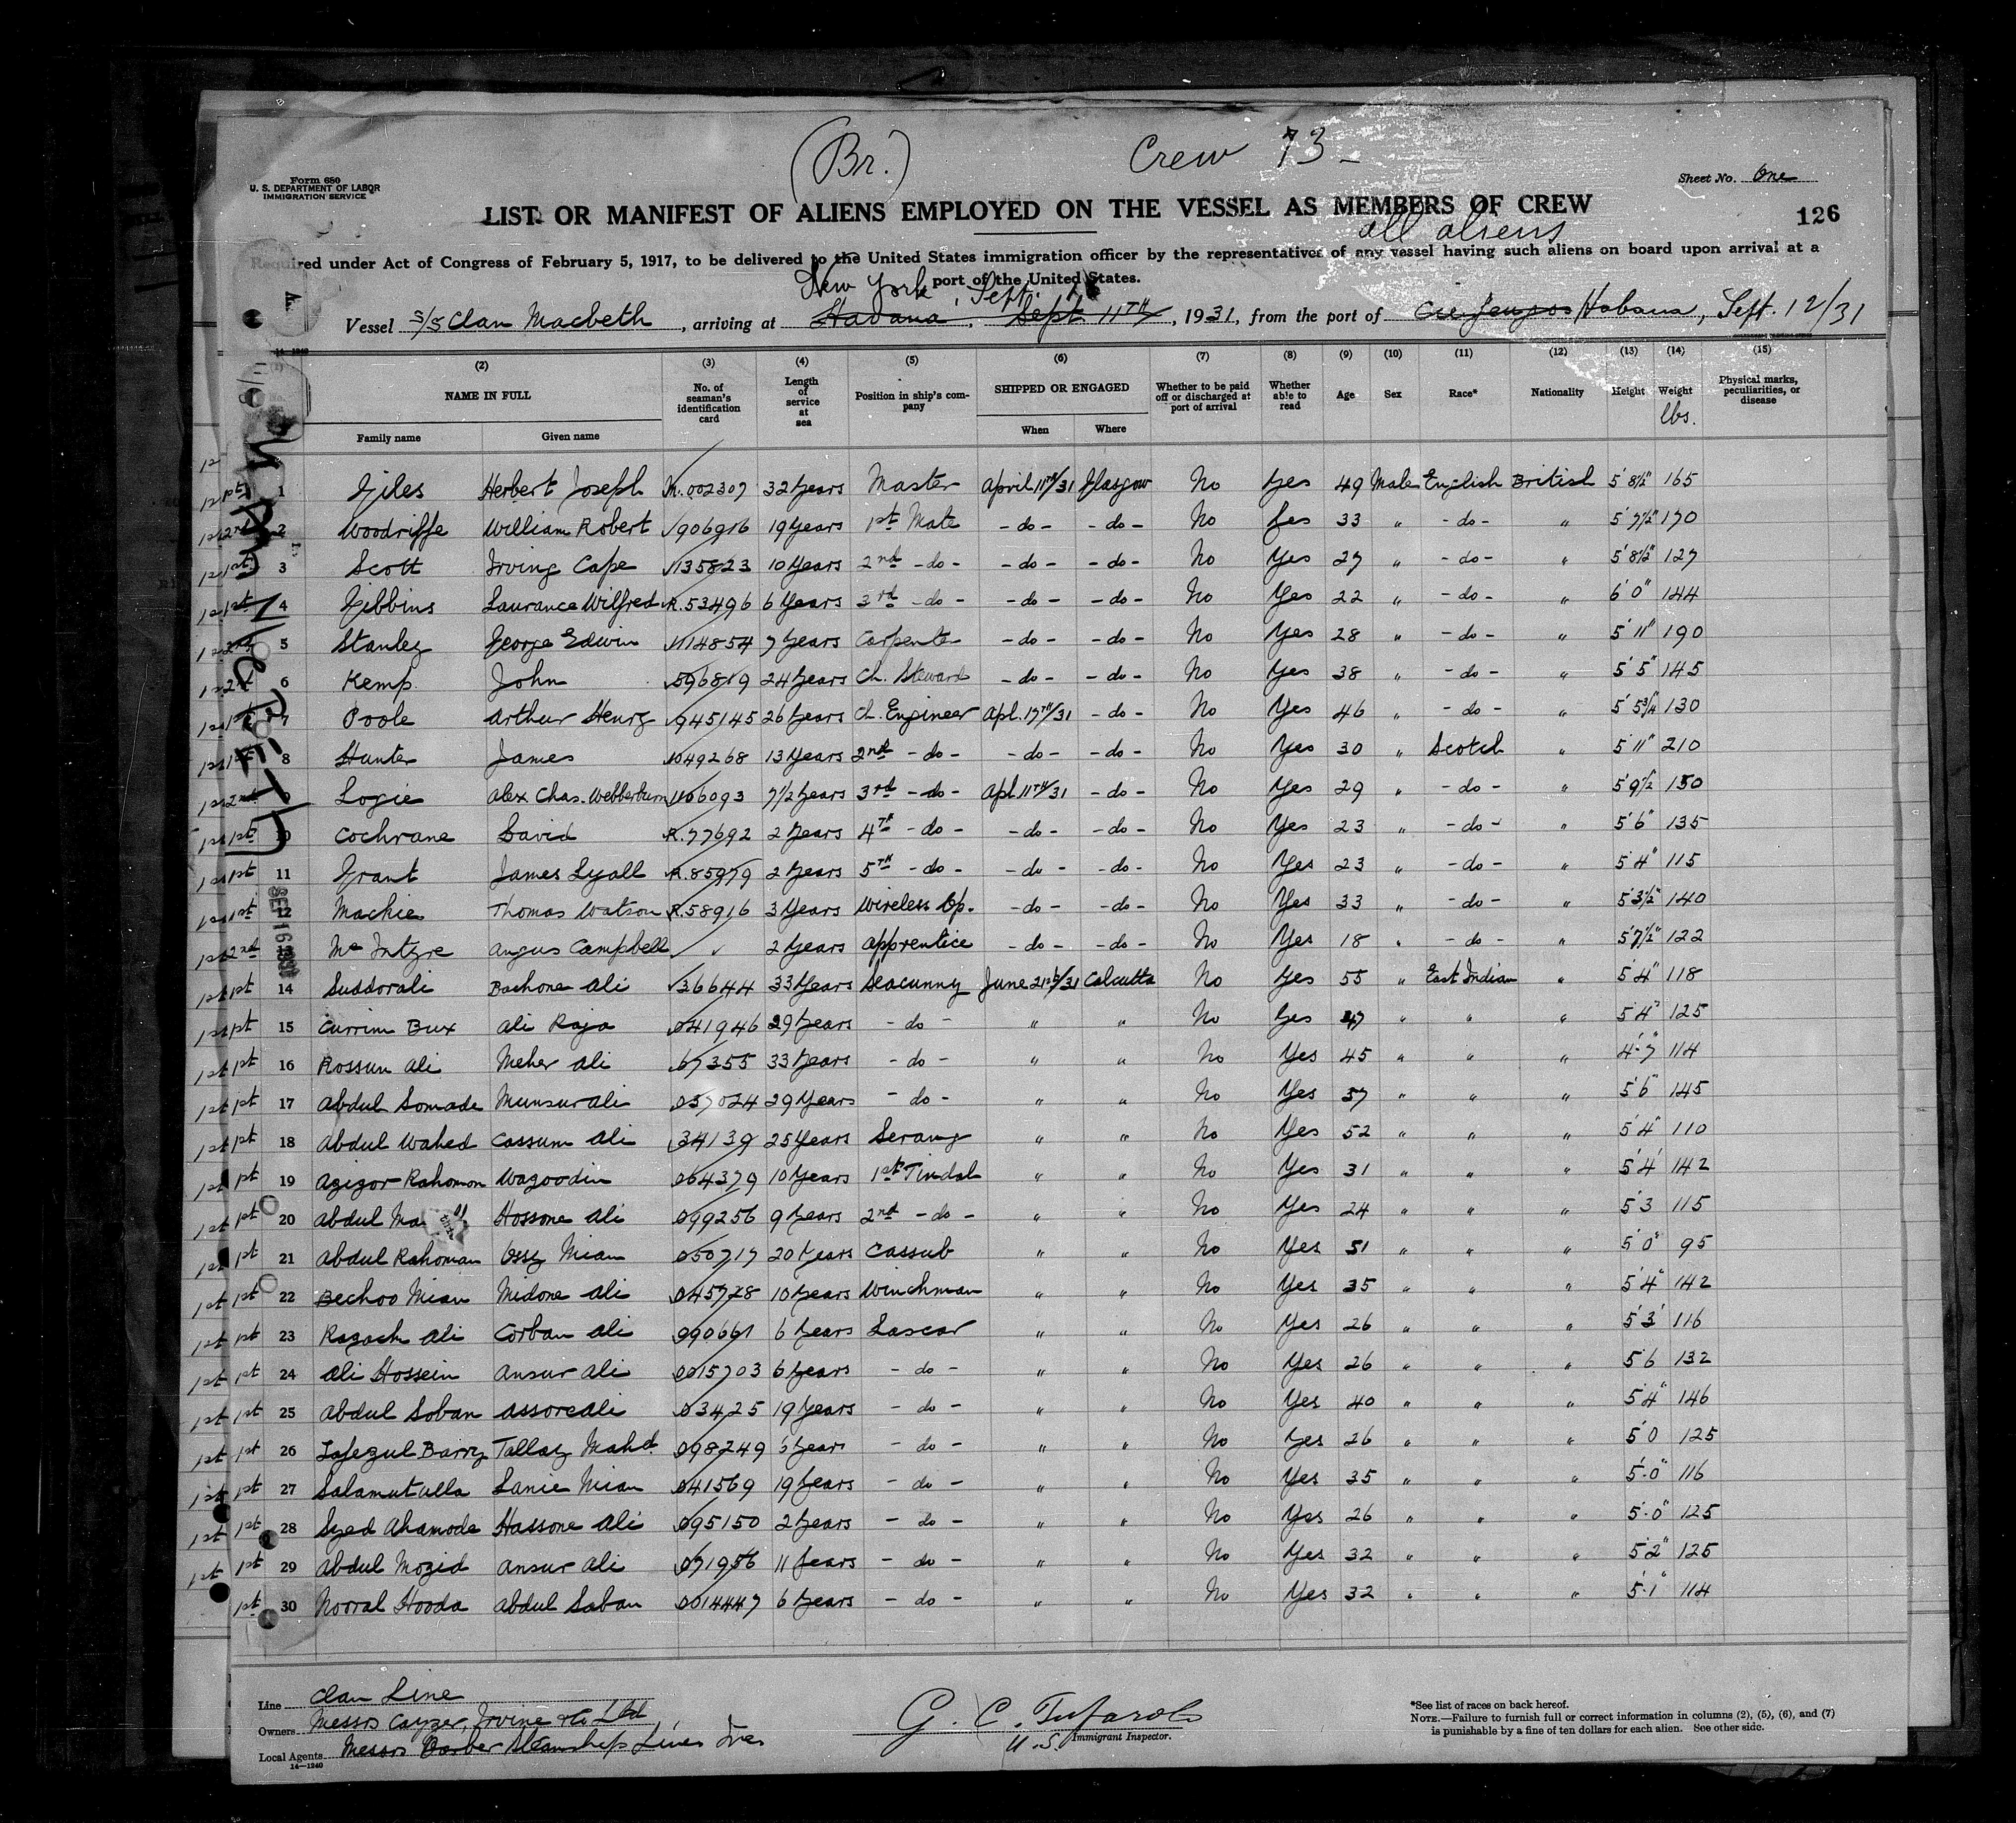 (Br.) Crew 73 -
Form 680
U. S. DEPARTMENT OF LABOR
IMMIGRATION SERVICE
Sheet No. One
LIST OR MANIFEST OF ALIENS EMPLOYED ON THE VESSEL AS MEMBERS OF CREW
126
all aliens
Required under Act of Congress of February 5, 1917, to be delivered to the United States immigration officer by the representatives of any vessel having such aliens on board upon arrival at a
port of the United States.
New York, Sept.
Vessel S/S Clan Macbeth, arriving at Havana, Sept 11TH, 1931, from the port of Cienfuegos Habana, Sept. 12/31
(2) (3) (4) (5) (6) (7) (8) (9) (10) (11) (12) (13) (14) (15)
NAME IN FULL
Family name Given name
No. of seaman's identification card
Length of service at sea
Position in ship's company
SHIPPED OR ENGAGED
When Where
Whether to be paid off or discharged at port of arrival
Whether able to read
Age Sex Race* Nationality Height Weight lbs.
Physical marks, peculiarities, or disease
1 Giles Herbert Joseph M.002307 32 Years Master April 11th/31 Glasgow No Yes 49 Male English British 5' 8½" 165
2 Woodriffe William Robert 906916 19 Years 1st Mate -do- -do- No Yes 33 " -do- " 5' 7½" 170
3 Scott Irving Cape 135823 10 Years 2nd -do- -do- -do- No Yes 27 " -do- " 5' 8½" 127
4 Gibbins Laurance Wilfred R.53496 6 Years 3rd -do- -do- -do- No Yes 22 " -do- " 6' 0" 144
5 Stanley George Edwin 114854 7 Years Carpenter -do- -do- No Yes 28 " -do- " 5' 11" 190
6 Kemp John 596819 24 Years Ch. Steward -do- -do- No Yes 38 " -do- " 5' 5" 145
7 Poole Arthur Henry 945145 26 Years Ch. Engineer Apl. 17th/31 -do- No Yes 46 " -do- " 5' 5¾" 130
8 Hunter James 1049268 13 Years 2nd -do- -do- -do- No Yes 30 " Scotch " 5' 11" 210
9 Logie Alex Chas. Webberburn 1106093 7½ Years 3rd -do- Apl 11TH/31 -do- No Yes 29 " -do- " 5' 9½ 150
10 Cochrane David R.77692 2 Years 4TH -do- -do- -do- No Yes 23 " -do- " 5' 6" 135
11 Grant James Lyall R.85979 2 Years 5TH -do- -do- -do- No Yes 23 " -do- " 5' 4" 115
12 Mackie Thomas Watson R.58916 3 Years Wireless Op. -do- -do- No Yes 33 " -do- " 5' 3½" 140
13 McIntyre Angus Campbell 2 Years Apprentice -do- -do- No Yes 18 " -do- " 5' 7½" 122
14 Suddorali Bachone Ali 36644 33 Years Seacunny June 21st/31 Calcutta No Yes 55 " East Indian " 5' 4" 118
15 Currim Bux Ali Raja 041946 29 Years -do- " " No Yes 47 " " " 5' 4" 125
16 Rossun Ali Meher Ali 67355 33 Years -do- " " No Yes 45 " " " 4-7" 114
17 Abdul Somade Munsur Ali 037024 29 Years -do- " " No Yes 57 " " " 5' 6" 145
18 Abdul Wahed Cassum Ali 34139 25 Years Serang " " No Yes 52 " " " 5' 4" 110
19 Azizor Rahomon Wazoodin 064379 10 Years 1st Tindal " " No Yes 31 " " " 5' 4' 142
20 Abdul Hossone Ali 099256 9 Years 2nd -do- " " No Yes 24 " " " 5' 3 115
21 Abdul Rahoman Ossy Mian 050717 20 Years Cassub " " No Yes 51 " " " 5' 0" 95
22 Bechoo Mian Midone Ali 045778 10 Years Winchman " " No Yes 35 " " " 5' 4" 142
23 Razack Ali Corban Ali 090661 6 Years Lascar " " No Yes 26 " " " 5' 3' 116
24 Ali Hossein Ansur Ali 0015703 6 Years -do- " " No Yes 26 " " " 5' 6 132
25 Abdul Soban Assore Ali 03425 19 Years -do- " " No Yes 40 " " " 5' 4" 146
26 Lafezul Barry Tallay Mahd. 098249 6 Years -do- " " No Yes 26 " " " 5' 0 125
27 Salamutulla Lanie Mian 041569 19 Years -do- " " No Yes 35 " " " 5-0" 116
28 Syed Ahamode Hassone Ali 095150 2 Years -do- " " No Yes 26 " " " 5-0" 125
29 Abdul Mozid Ansur Ali 071956 11 Years -do- " " No Yes 32 " " " 5' 2" 125
30 Norral Hooda Abdul Soban 0014447 6 Years -do- " " No Yes 32 " " " 5-1" 114
Line Clan Line
Owners Messrs Cayzer, Irvine & Co Ltd
Local Agents Messrs Barber Steamship Lines Inc
14—1240
U.S. Immigrant Inspector.
*See list of races on back hereof.
NOTE.—Failure to furnish full or correct information in columns (2), (5), (6), and (7)
is punishable by a fine of ten dollars for each alien. See other side.